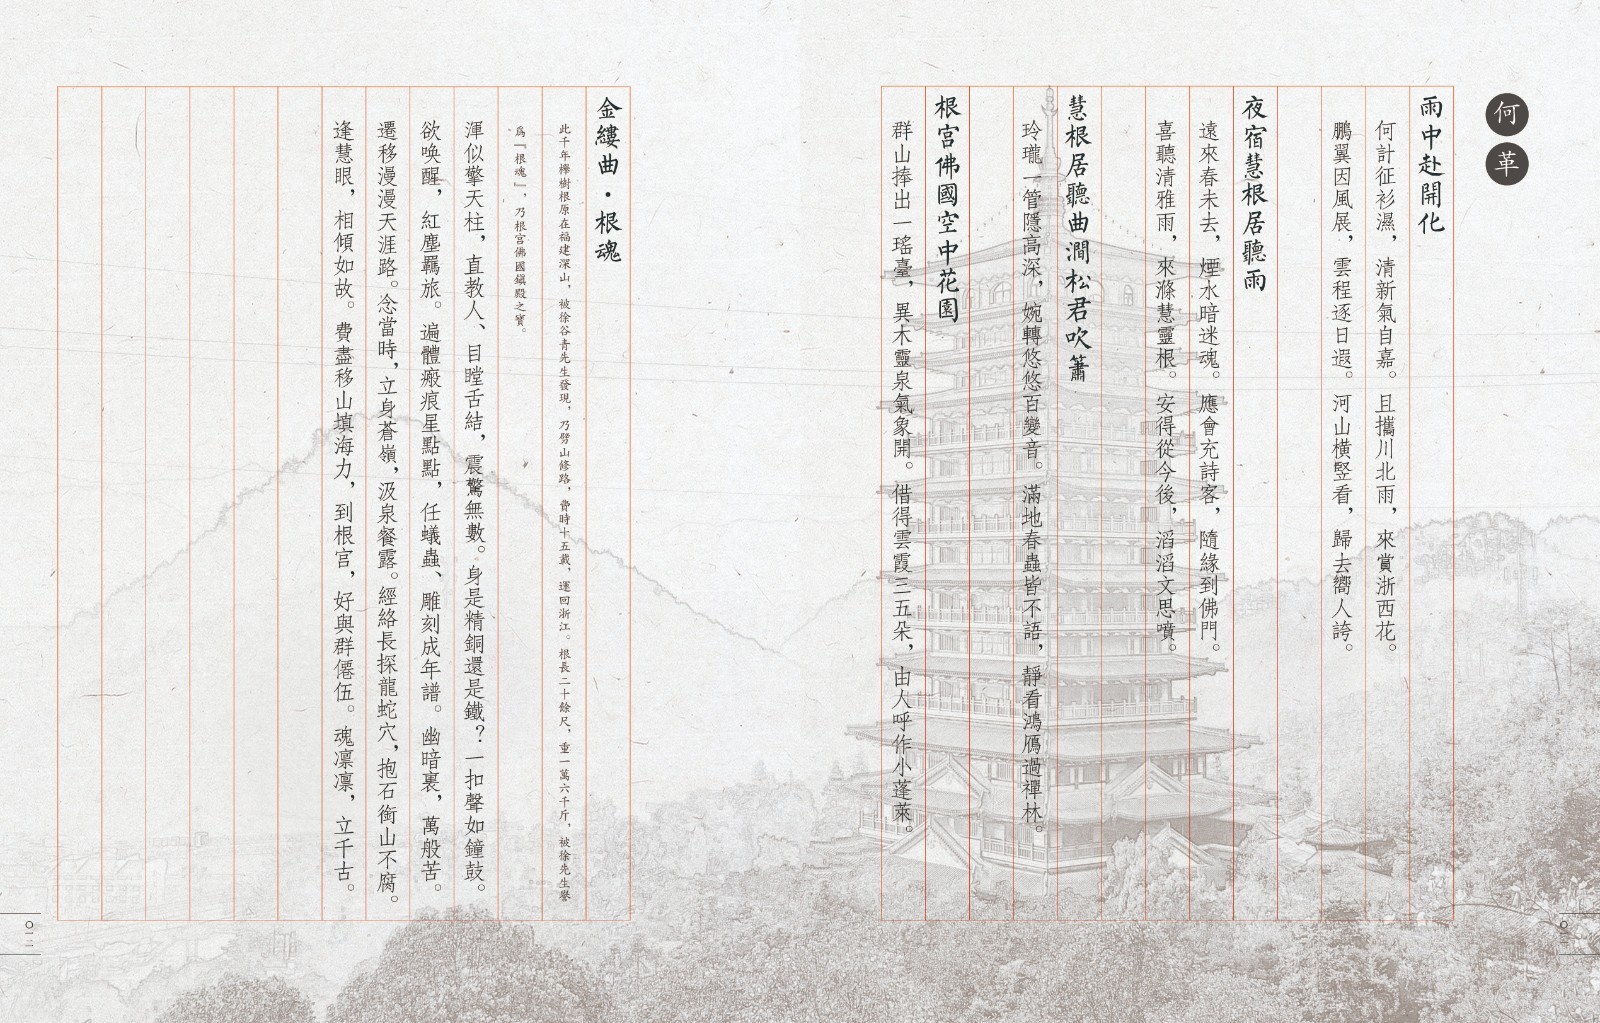 何革
雨中赴開化
何計征衫濕，清新氣自嘉。且攜川北雨，來賞浙西花。
鵬翼因風展，雲程逐日遐。河山橫竪看，歸去嚮人誇。
夜宿慧根居聽雨
遠來春未去，煙水暗迷魂。應會充詩客，隨緣到佛門。
喜聽清雅雨，來滌慧靈根。安得從今後，滔滔文思噴。
慧根居聽曲澗松君吹簫
玲瓏一管隱高深，婉轉悠悠百變音。滿地春蟲皆不語，靜看鴻鴈過禪林。
根宮佛國空中花園
群山捧出一瑤臺，異木靈泉氣象開。借得雲霞三五朵，由人呼作小蓬萊。
金縷曲·根魂
此千年櫸樹根原在福建深山，被徐谷青先生發現，乃劈山修路，費時十五載，運回浙江。根長二十餘尺，重一萬六千斤，被徐先生譽
爲『根魂』，乃根宮佛國鎮殿之寶。
渾似擎天柱，直教人、目瞠舌結，震驚無數。身是精銅還是鐵？一扣聲如鐘鼓。
欲喚醒，紅塵羈旅。遍體瘢痕星點點，任蟻蟲、雕刻成年譜。幽暗裏，萬般苦。
遷移漫漫天涯路。念當時，立身蒼嶺，汲泉餐露。經絡長探龍蛇穴，抱石銜山不腐。
逢慧眼，相傾如故。費盡移山填海力，到根宮，好與群僊伍。魂凛凛，立千古。
〇一二